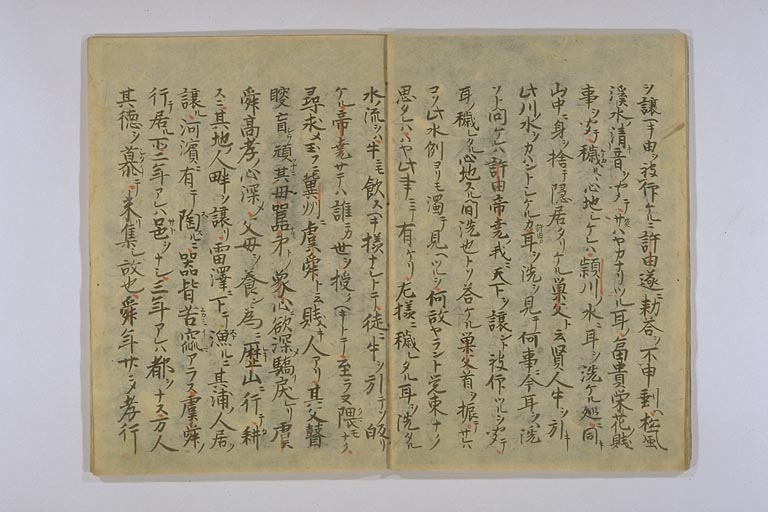 シ譲ヘキ由ヲ被仰ケルニ許由遂ニ勅答ヲ不申剰ヘ松風
渓水ノ清音ヲ サハヤカナリツル耳ノ富貴栄花ノ賎キ
事ヲ 穢レタル心地シケレハ潁川ノ水ニ耳ヲ洗ケル処ニ同キ
山中ニ身ヲ捨テ隠居タリケル巣父ト云賢人牛ヲ引キ
此川ニ水ヲカハントシケルカ許由カ耳ヲ洗ヲ見テ何事ニ今耳ヲハ洗
ソト問ケレハ許由帝尭ノ我ニ天下ヲ譲ント被仰ツルヲ
耳ノ穢レタル心地スル間洗也トソ答ケル巣父首ヲ振テサハ
コソ此水例ヨリモ濁テ見ヘツルヲ何故ヤラント覚束ナク
思タレハハヤ此事ニテ有ケリ左様ニ穢レタル耳ヲ洗タル
水ノ流ヲハ牛ニモ飲スヘキ様ナシトテ徒ニ牛ヲ引テソ皈リ
ケル帝尭サテハ誰ニカ世ヲ授ヘキトテ至ラヌ隈モナク
尋求メ玉フニ冀州ニ虞舜ト云賎キ人アリ其父瞽
瞍盲ニ頑其母嚚弟ノ象ハ心欲深驕戻レリ虞
舜高孝ノ心深メ父母ヲ養ン為ニ歴山ニ行テ耕
スニ其地ノ人畔ヲ譲リ雷澤ニ下テ漁ルニ其浦ノ人居ヲ
譲ル河濱ニ有テ陶スルニ器皆苦窳アラス虞舜ノ
行テ居ル所二年アレハ邑ヲナシ三年アレハ都ヲナス万人
其徳ヲ慕テ来集シ故也舜年 孝行